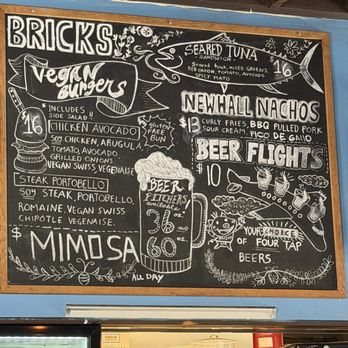 BRICKS
VEGAN
BURGERS
$16
* INCLUDES
SIDE SALAD
CHICKEN AVOCADO
SOY CHICKEN, ARUGULA,
TOMATO, AVOCADO,
GRILLED ONIONS
VEGAN SWISS, VEGENAISE
STEAK PORTOBELLO
SOY STEAK, PORTOBELLO,
ROMAINE, VEGAN SWISS
CHIPOTLE VEGENAISE.
$
MIMOSA
ALL DAY
GLUTEN
FREE
BUN
BEER
PITCHERS
36 oz.
60 oz.
SEARED TUNA
SANDWICH
SEARED TUNA, MIXED GREENS,
RED ONION, TOMATO, AVOCADO
SPICY MAYO
$16
NEWHALL NACHOS
$13 CURLY FRIES, BBQ PULLED PORK
SOUR CREAM, PICO DE GALLO
BEER FLIGHTS
$10
YOUR CHOICE
OF FOUR TAP
BEERS